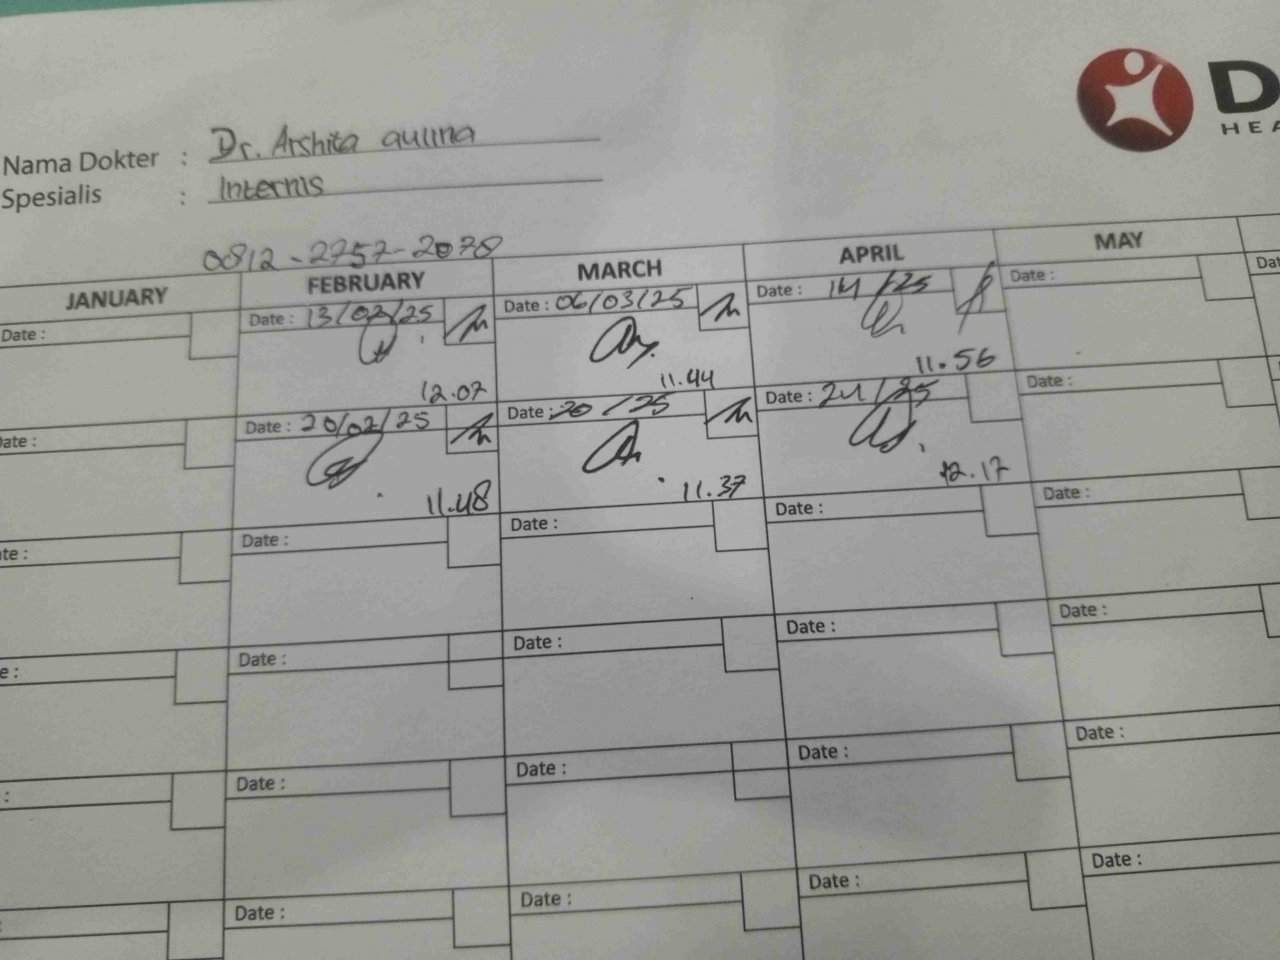 D
HEA
Nama Dokter : Dr. Arshita aulina
Spesialis : Internis
0812-2757-2078
JANUARY FEBRUARY MARCH APRIL MAY
Date : Date : 13/02/25 Date : 06/03/25 Date : 14/25 Date : Dat
12.07 11.44 11.56
ate : Date : 20/02/25 Date : 20/25 Date : 24/25 Date :
11.48 11.37 12.17
te : Date : Date : Date : Date :
e : Date : Date : Date : Date :
: Date : Date : Date : Date :
: Date : Date : Date : Date :